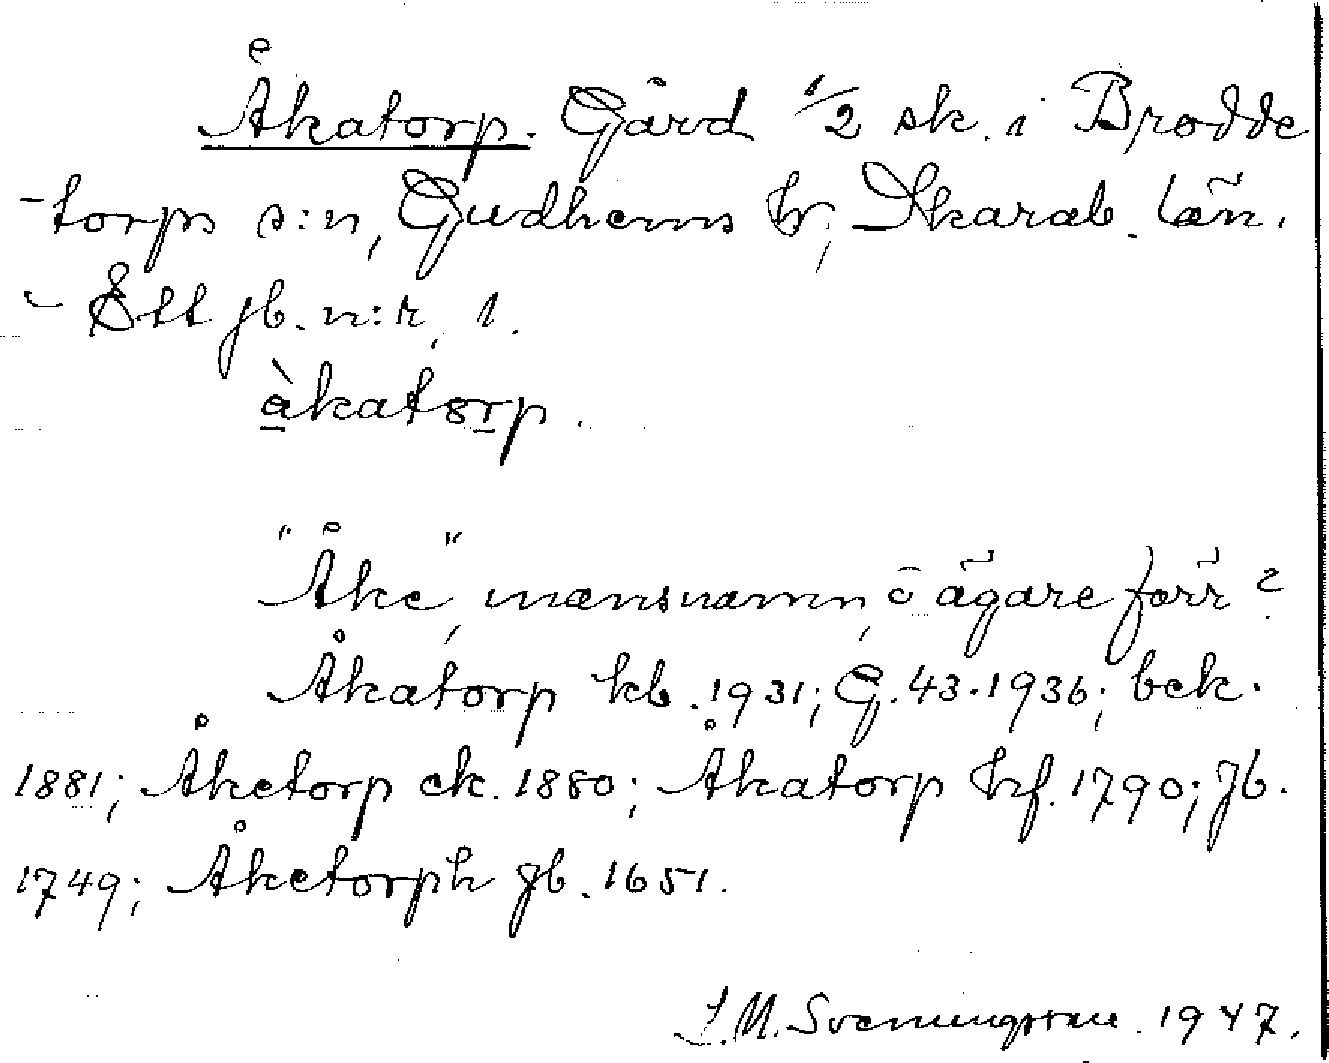 Åkatorp. Gård 1/2 sk. i Brodde
-torps s:n, Gudhems hr, Skarab. län.
- Ett jb. n:r, 1.
àkatorp.
"Åke", mansnamn, ägare förr?
Åkatorp kb. 1931; G. 43. 1936; bek.
1881; Åketorp ek. 1880; Åkatorp hf. 1790; Jb.
1749; Åketorph jb. 1651.
J. M. Svenungsson. 1947.